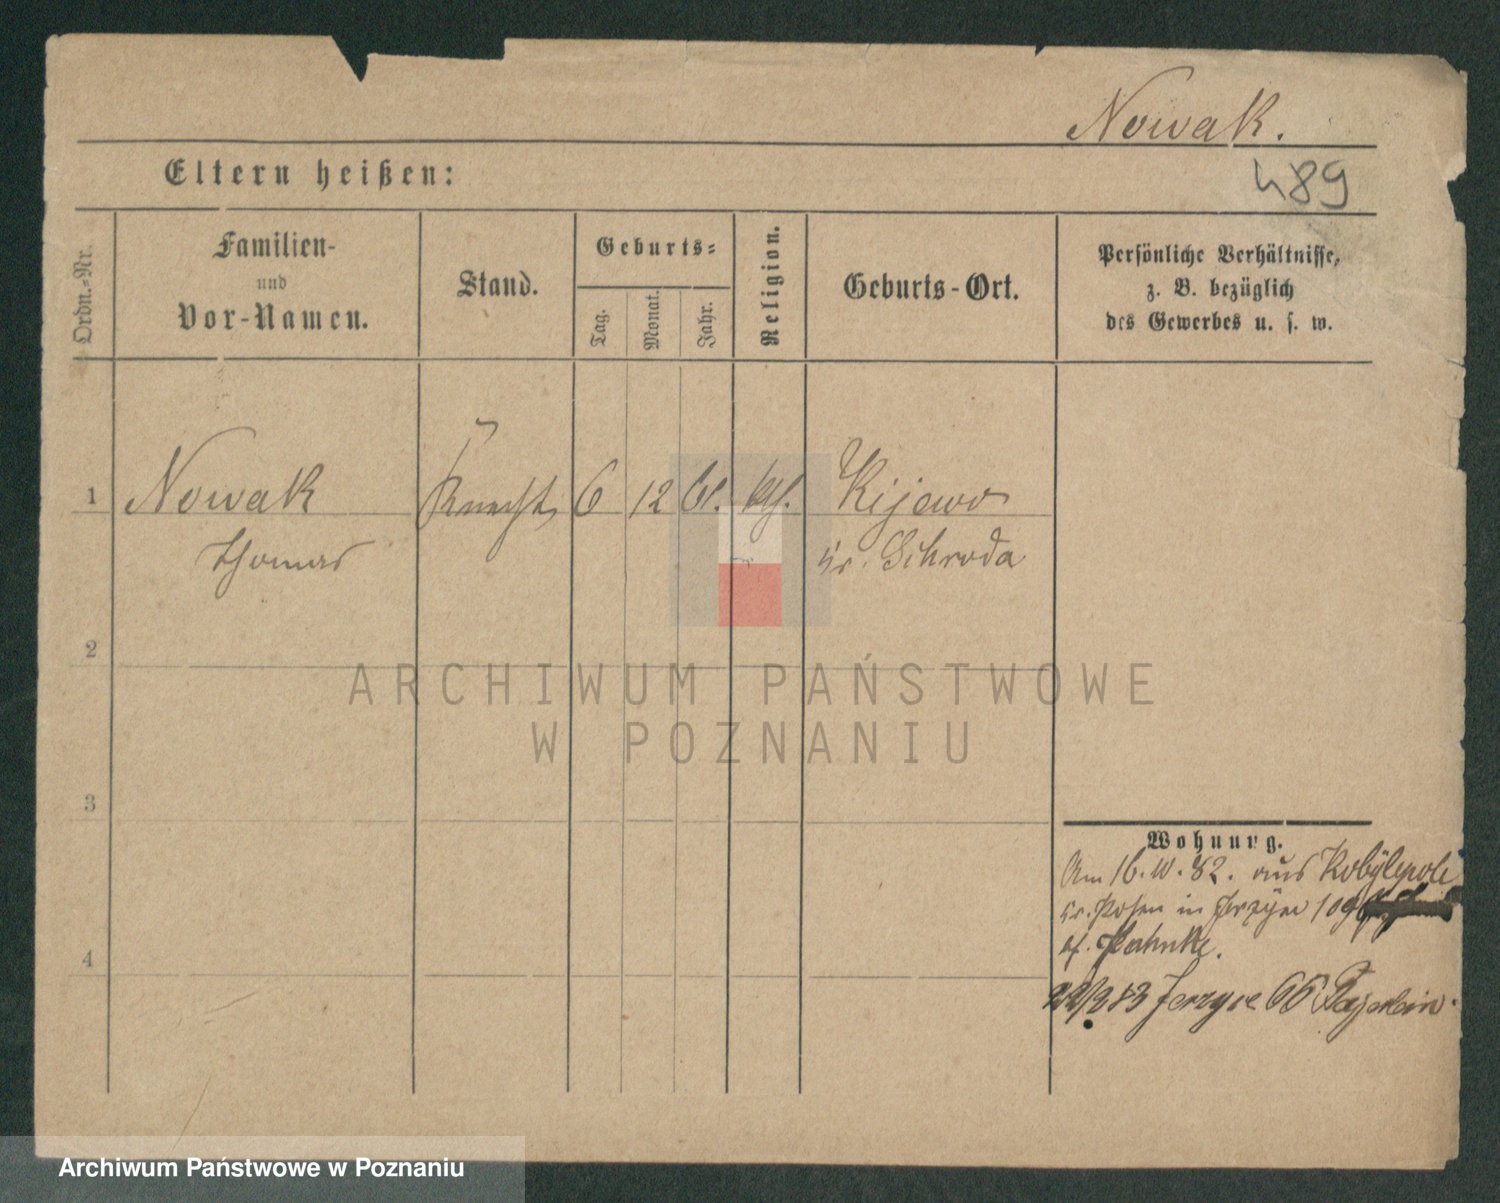 Nowak.
Eltern heißen:
489
Ordn.-Nr.
Familien-
und
Vor-Namen.
Stand.
Geburts-
Tag.
Monat.
Jahr.
Religion.
Geburts-Ort.
Persönliche Verhältnisse,
z. B. bezüglich
des Gewerbes u. s. w.
1 Nowak Knecht 6 12 61. kth. Kijewo
Thomas Kr. Schroda
2
3
4
Wohnung.
Am 16. 10. 82. aus Kobylepole
Kr. Posen in Jerzyce 109
Pahnke.
22/3 83 Jerzyce 66
ARCHIWUM PAŃSTWOWE
W POZNANIU
Archiwum Państwowe w Poznaniu